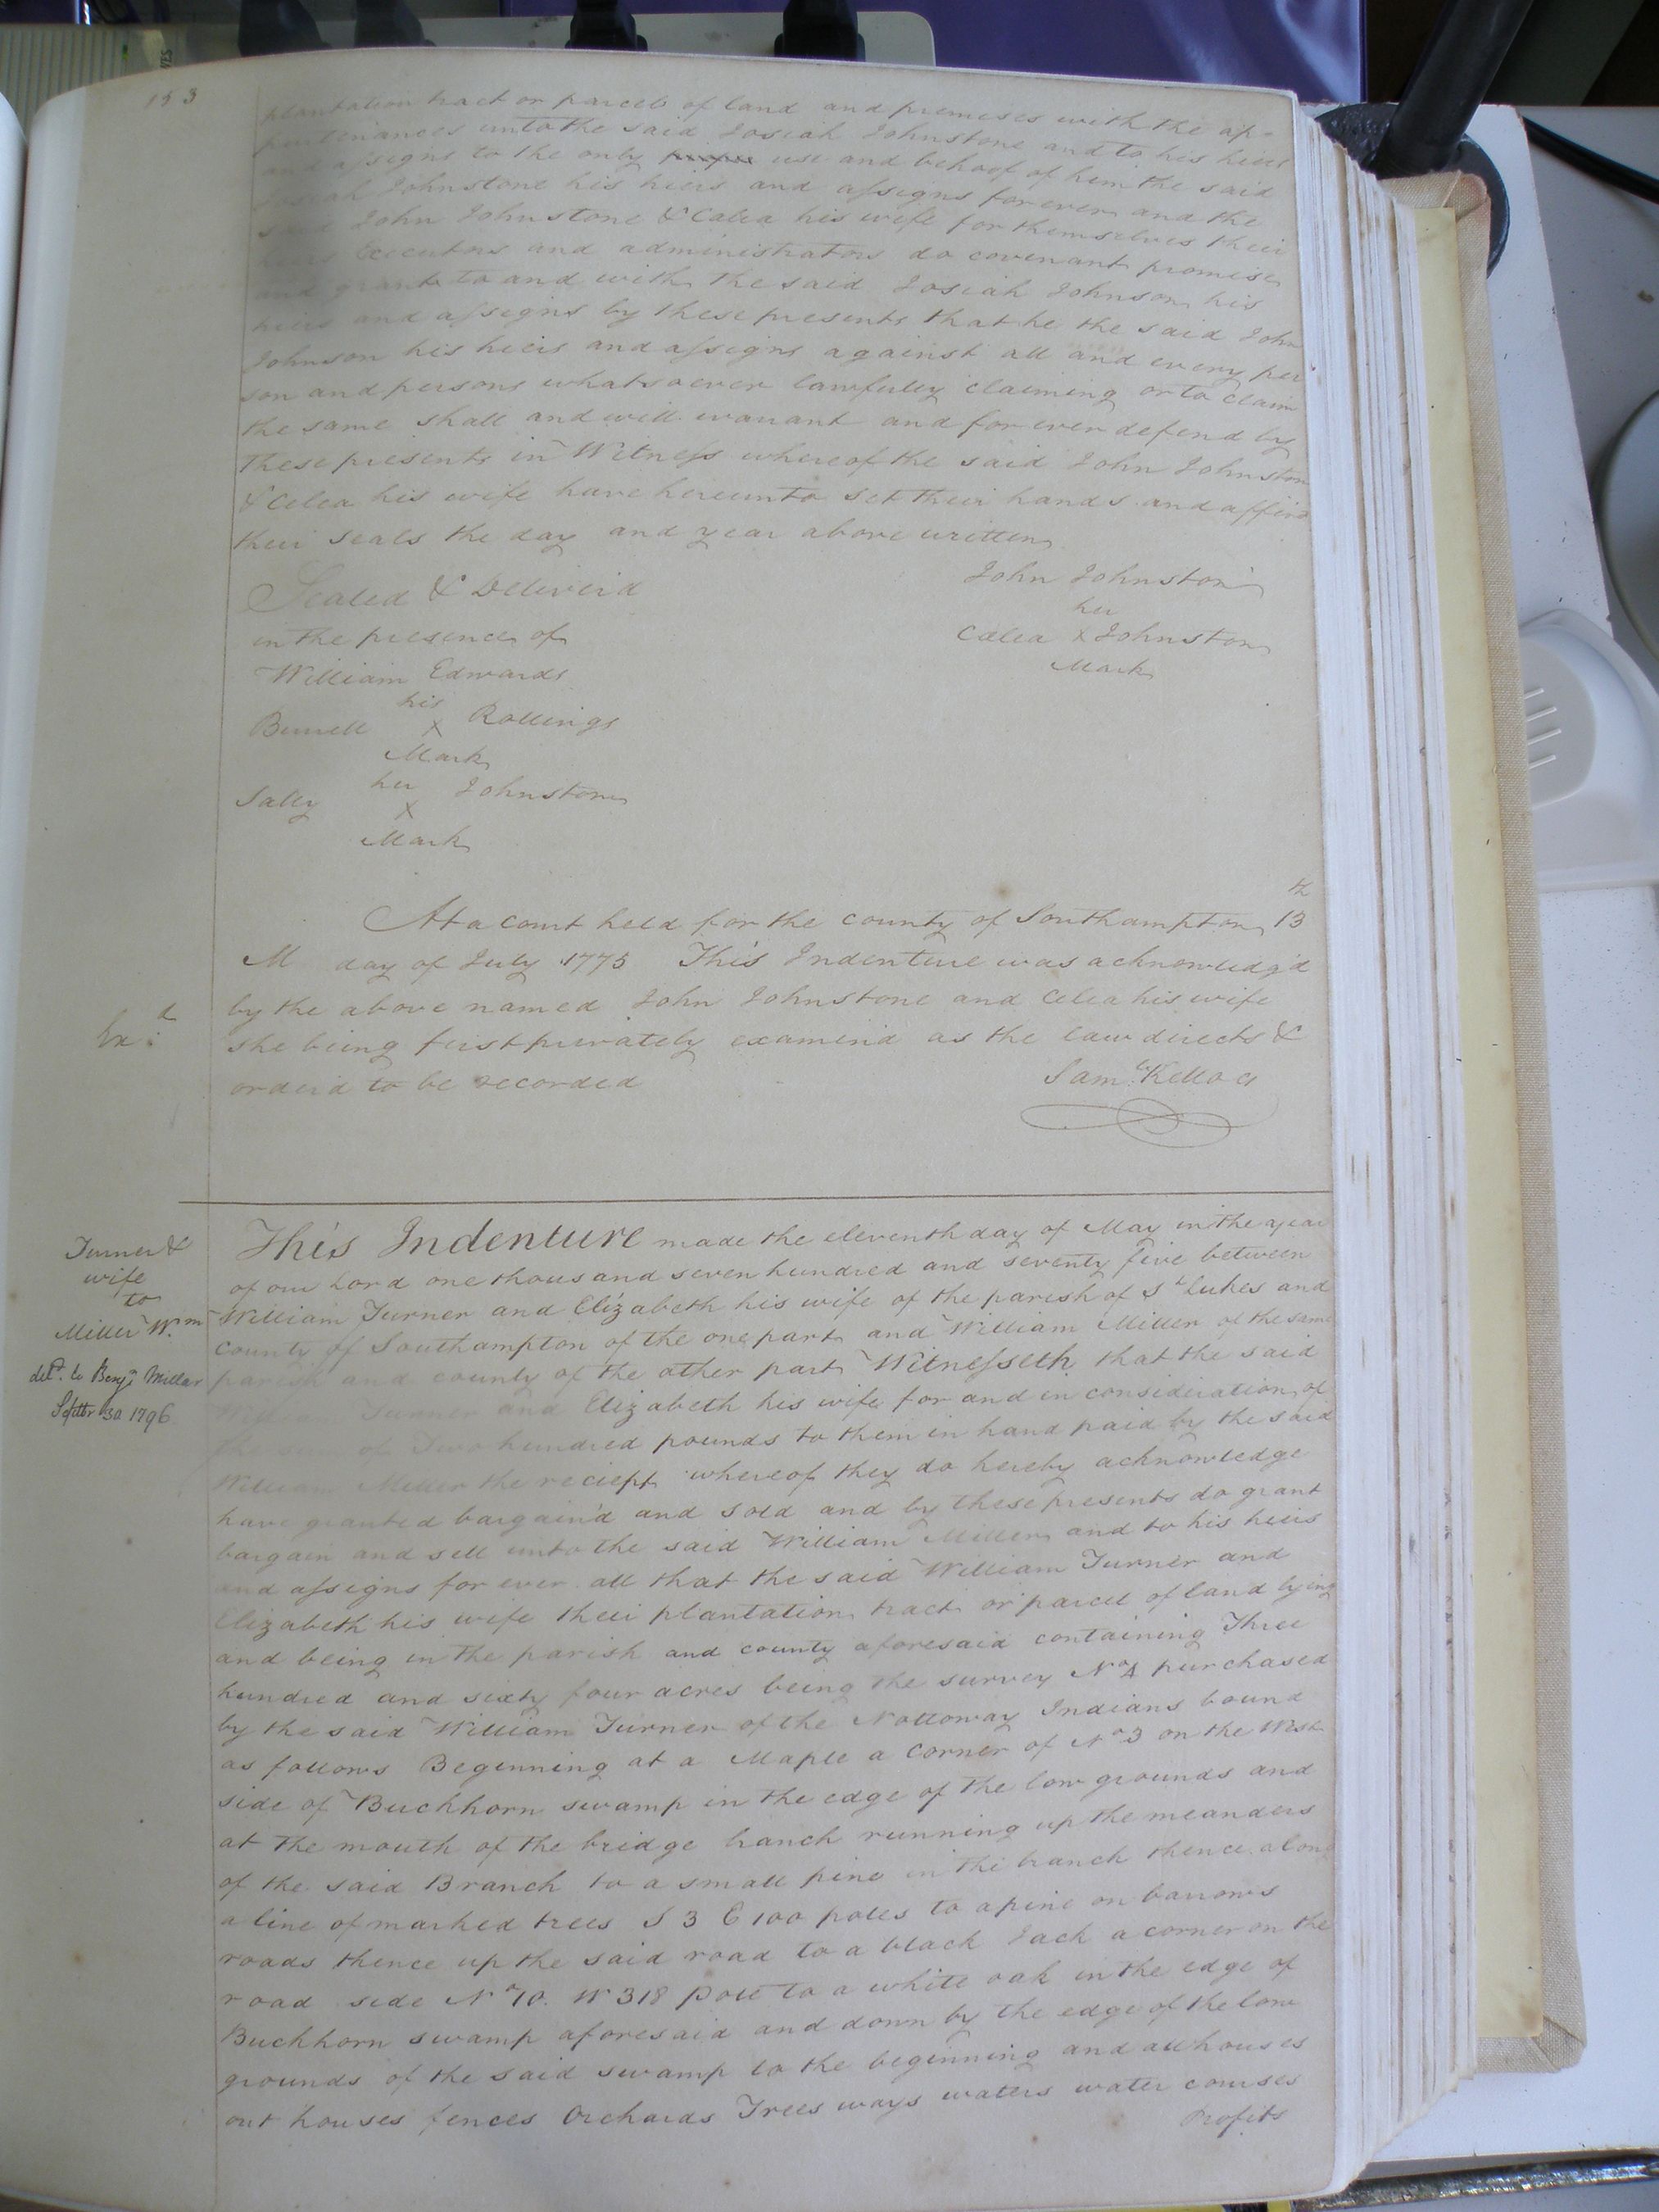 153
plantation tract or parcels of land and premises with the ap-
purtenances unto the said Josiah Johnstone and to his heirs
and assigns to the only use and behoof of him the said
Josiah Johnstone his heirs and assigns forever and the
said John Johnstone & Celea his wife for themselves their
heirs Executors and administrators do covenant promise
and grant to and with the said Josiah Johnson his
heirs and assigns by these presents that he the said John
Johnson his heirs and assigns against all and every per
son and persons whatsoever lawfully claiming or to claim
the same shall and will warrant and forever defend by
these presents in Witness whereof the said John Johnston
& Celea his wife have hereunto set their hands and affixd
their seals the day and year above written
Sealed & Deliverd
in the presence of
William Edwards
his
Burrell X Rollings
Mark
her
Sally X Johnston
Mark
John Johnston
her
Calea X Johnston
Mark
At a court held for the county of Southampton 13th
M day of July 1775 This Indenture was acknowledg'd
by the above named John Johnstone and Celea his wife
Exd
she being first privately examind as the law directs &
orderd to be recorded
Saml Kello
Turner &
wife
to
Miller Wm
deld. to Benja Millar
Septbr 30 1796
This Indenture made the eleventh day of May in the year
of our Lord one thousand seven hundred and seventy five between
William Turner and Elizabeth his wife of the parish of St Lukes and
county of Southampton of the one part and William Miller of the same
parish and county of the other part Witnesseth that the said
William Turner and Elizabeth his wife for and in consideration of
the sum of Two hundred pounds to them in hand paid by the said
William Miller the reciept whereof they do hereby acknowledge
have granted bargain'd and sold and by these presents do grant
bargain and sell unto the said William Miller and to his heirs
and assigns for ever all that the said William Turner and
Elizabeth his wife their plantation tract or parcel of land lying
and being in the parish and county aforesaid containing Three
hundred and sixty four acres being the survey No 4 purchased
by the said William Turner of the Nottoway Indians bound
as follows Beginning at a Maple a corner of No 3 on the West
side of Buckhorn swamp in the edge of the low grounds and
at the mouth of the bridge branch running up the meanders
of the said Branch to a small pine in the branch thence along
a line of marked trees S 3 E 100 poles to a pine on barrows
roads thence up the said road to a black Jack a corner on the
road side N 70. W 318 pole to a white oak in the edge of
Buckhorn swamp aforesaid and down by the edge of the low
grounds of the said swamp to the beginning and all houses
out houses fences Orchards Trees ways waters water courses
Profits